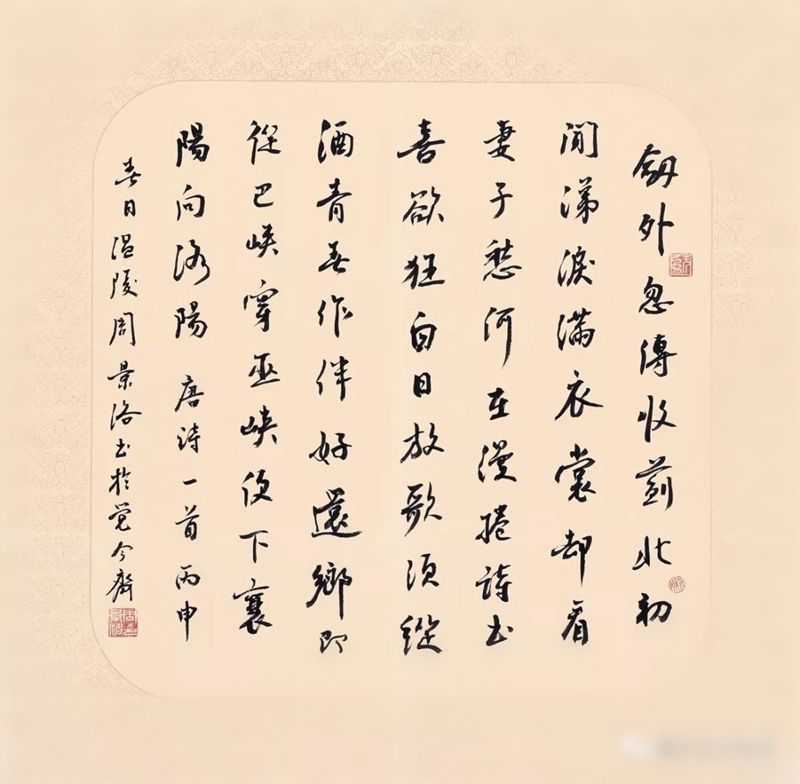 劔外忽傳收薊北初
聞涕淚滿衣裳却看
妻子愁何在漫捲詩书
喜欲狂白日放歌須縱
酒青春作伴好還鄉即
從巴峽穿巫峽便下襄
陽向洛陽 唐詩一首丙申
春日温陵周景洛书於覺今齋